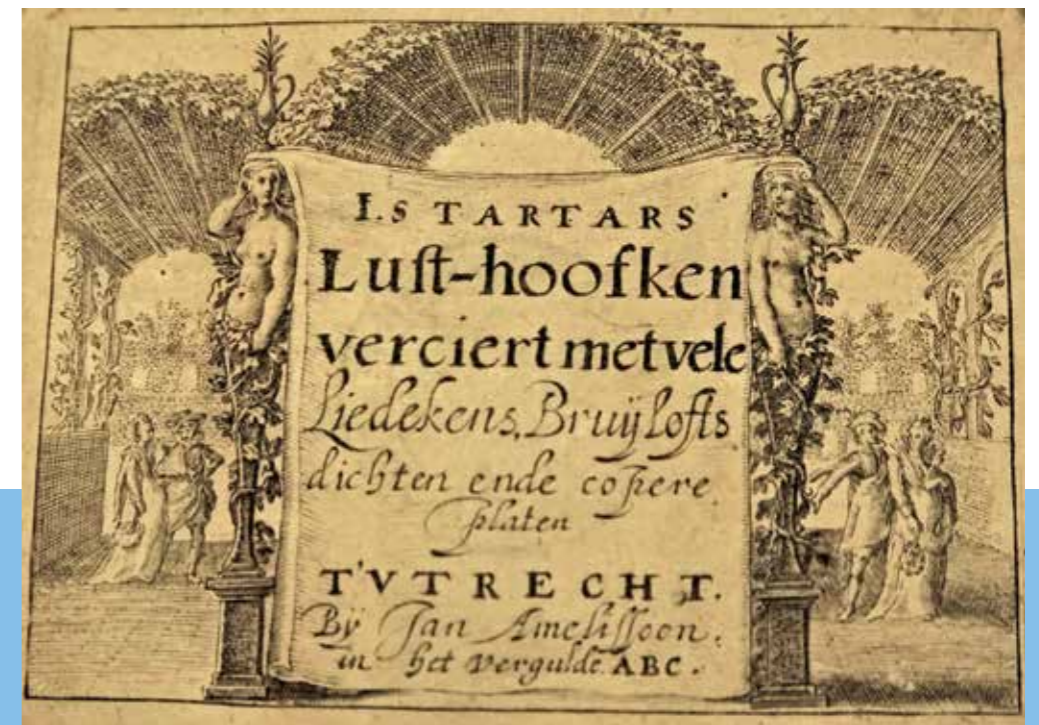 I. STARTARS
Luſt-hoofken
verciert met vele
Liedekens, Bruÿlofts
dichten ende copere
platen
T'VTRECHT.
Bÿ Jan Amelissoon.
in het vergulde ABC.